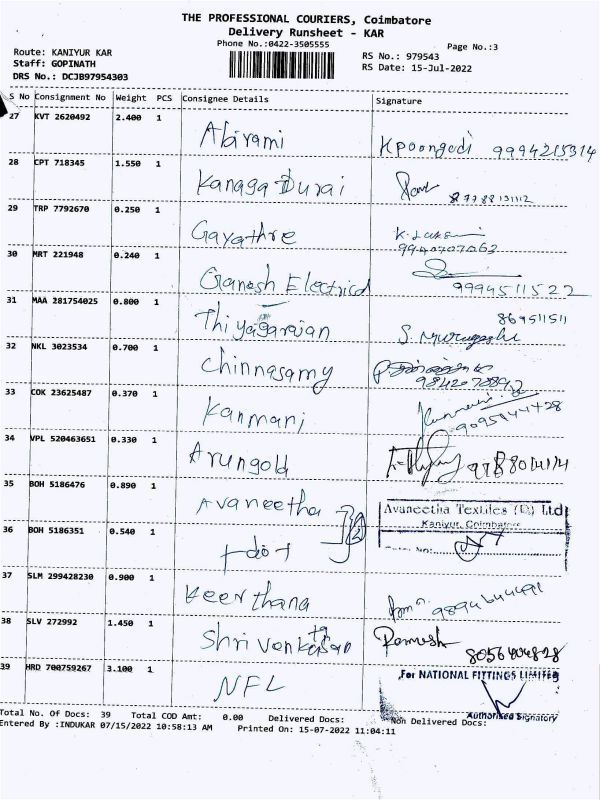 THE PROFESSIONAL COURIERS, Coimbatore
Delivery Runsheet - KAR
Phone No.:0422-3505555
Page No.:3
Route: KANIYUR KAR
Staff: GOPINATH
DRS No.: DCJB97954303
RS No.: 979543
RS Date: 15-Jul-2022
S No Consignment No Weight PCS Consignee Details Signature
27 KVT 2620492 2.400 1
Abirami Kpoongodi 9994215914
28 CPT 718345 1.550 1
Kanaga Durai
29 TRP 7792670 0.250 1
Gayathre
30 MRT 221948 0.240 1
Ganesh Electrical 9994511522
31 MAA 281754025 0.800 1
Thiyagarajan 869511511
32 NKL 3023534 0.700 1
Chinnasamy
33 COK 23625487 0.370 1
Kanmani
34 VPL 520463651 0.330 1
Arungold
35 BOH 5186476 0.890 1
Avaneetha Avaneetha Textiles (P) Ltd
Kaniyur, Coimbatore
36 BOH 5186351 0.540 1
37 SLM 299428230 0.900 1
Keerthana
38 SLV 272992 1.450 1
Shri Ramesh
39 HRD 700759267 3.100 1
NFL For NATIONAL FITTINGS LIMITED
Authorised Signatory
Total No. Of Docs: 39 Total COD Amt: 0.00 Delivered Docs: Non Delivered Docs:
Entered By :INDUKAR 07/15/2022 10:58:13 AM Printed On: 15-07-2022 11:04:11